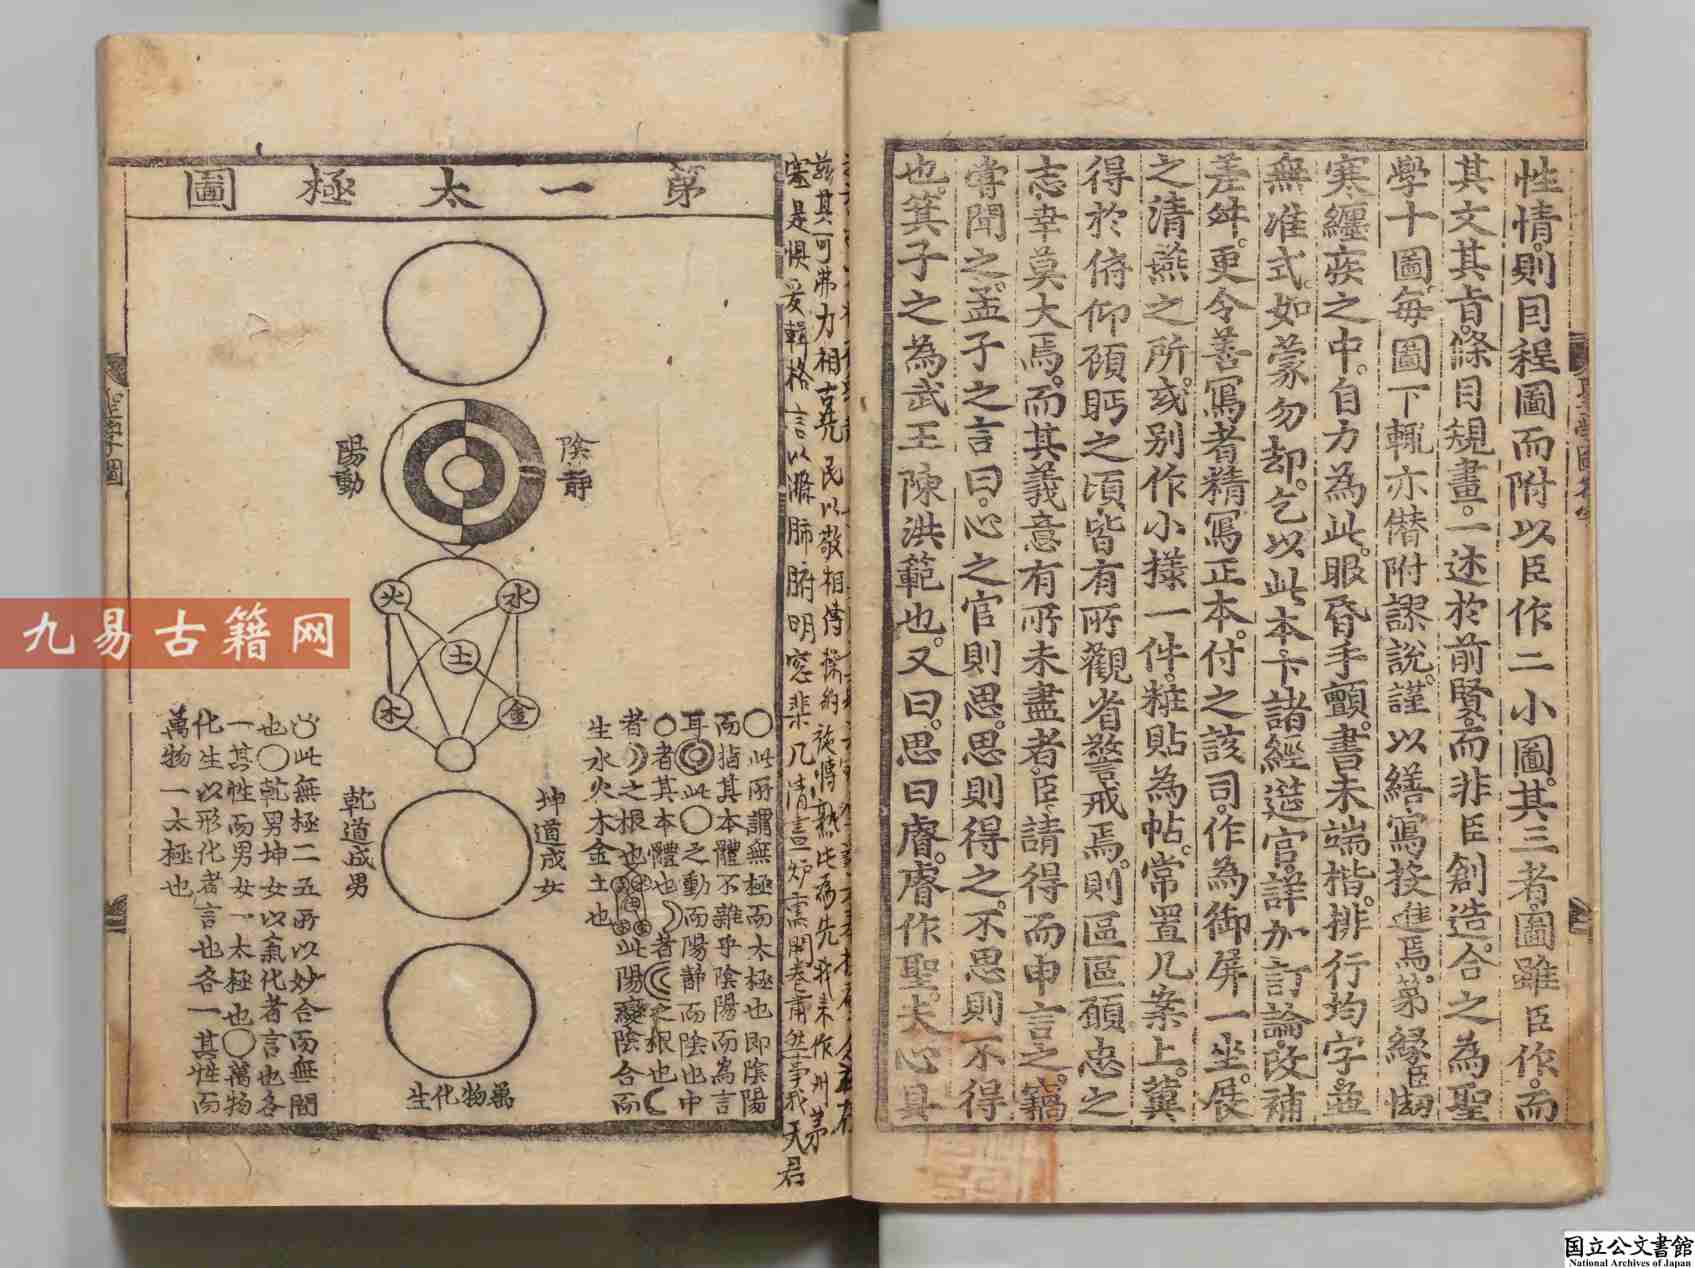 性情則因程圖而附以臣作二小圖其三者圖雖臣作而
其文其旨條目規畫一述於前賢而非臣創造合之為聖
學十圖每圖下輒亦僭附謬說謹以繕寫投進焉第緣臣㥘
寒纏疾之中自力為此眼昏手顫書未端楷排行均字並
無准式如蒙勿却乞以此本下諸經筵官詳加訂論改補
差舛更令善寫者精寫正本付之該司作為御屏一坐展
之清燕之所或別作小㨾一件粧貼為帖常置几案上冀
得於俯仰顧眄之頃皆有所觀省警戒焉則區區願忠之
志幸莫大焉而其義意有所未盡者臣請得而申言之竊
嘗聞之孟子之言曰心之官則思思則得之不思則不得
也箕子之為武王陳洪範也又曰思曰睿睿作聖夫心具
第一太極圖
陰靜
陽動
火
水
土
木
金
坤道成女
乾道成男
萬物化生
〇此所謂無極而太極也即陰陽
而指其本體不雜乎陰陽而為言
耳此〇之動而陽靜而陰也中
〇者其本體也者之根也
者之根也此陽變陰合而
生水火木金土也
此無極二五所以妙合而無間
也〇乾男坤女以氣化者言也各
一其性而男女一太極也〇萬物
化生以形化者言也各一其性而
萬物一太極也
聖學圖
九易古籍网
国立公文書館
National Archives of Japan